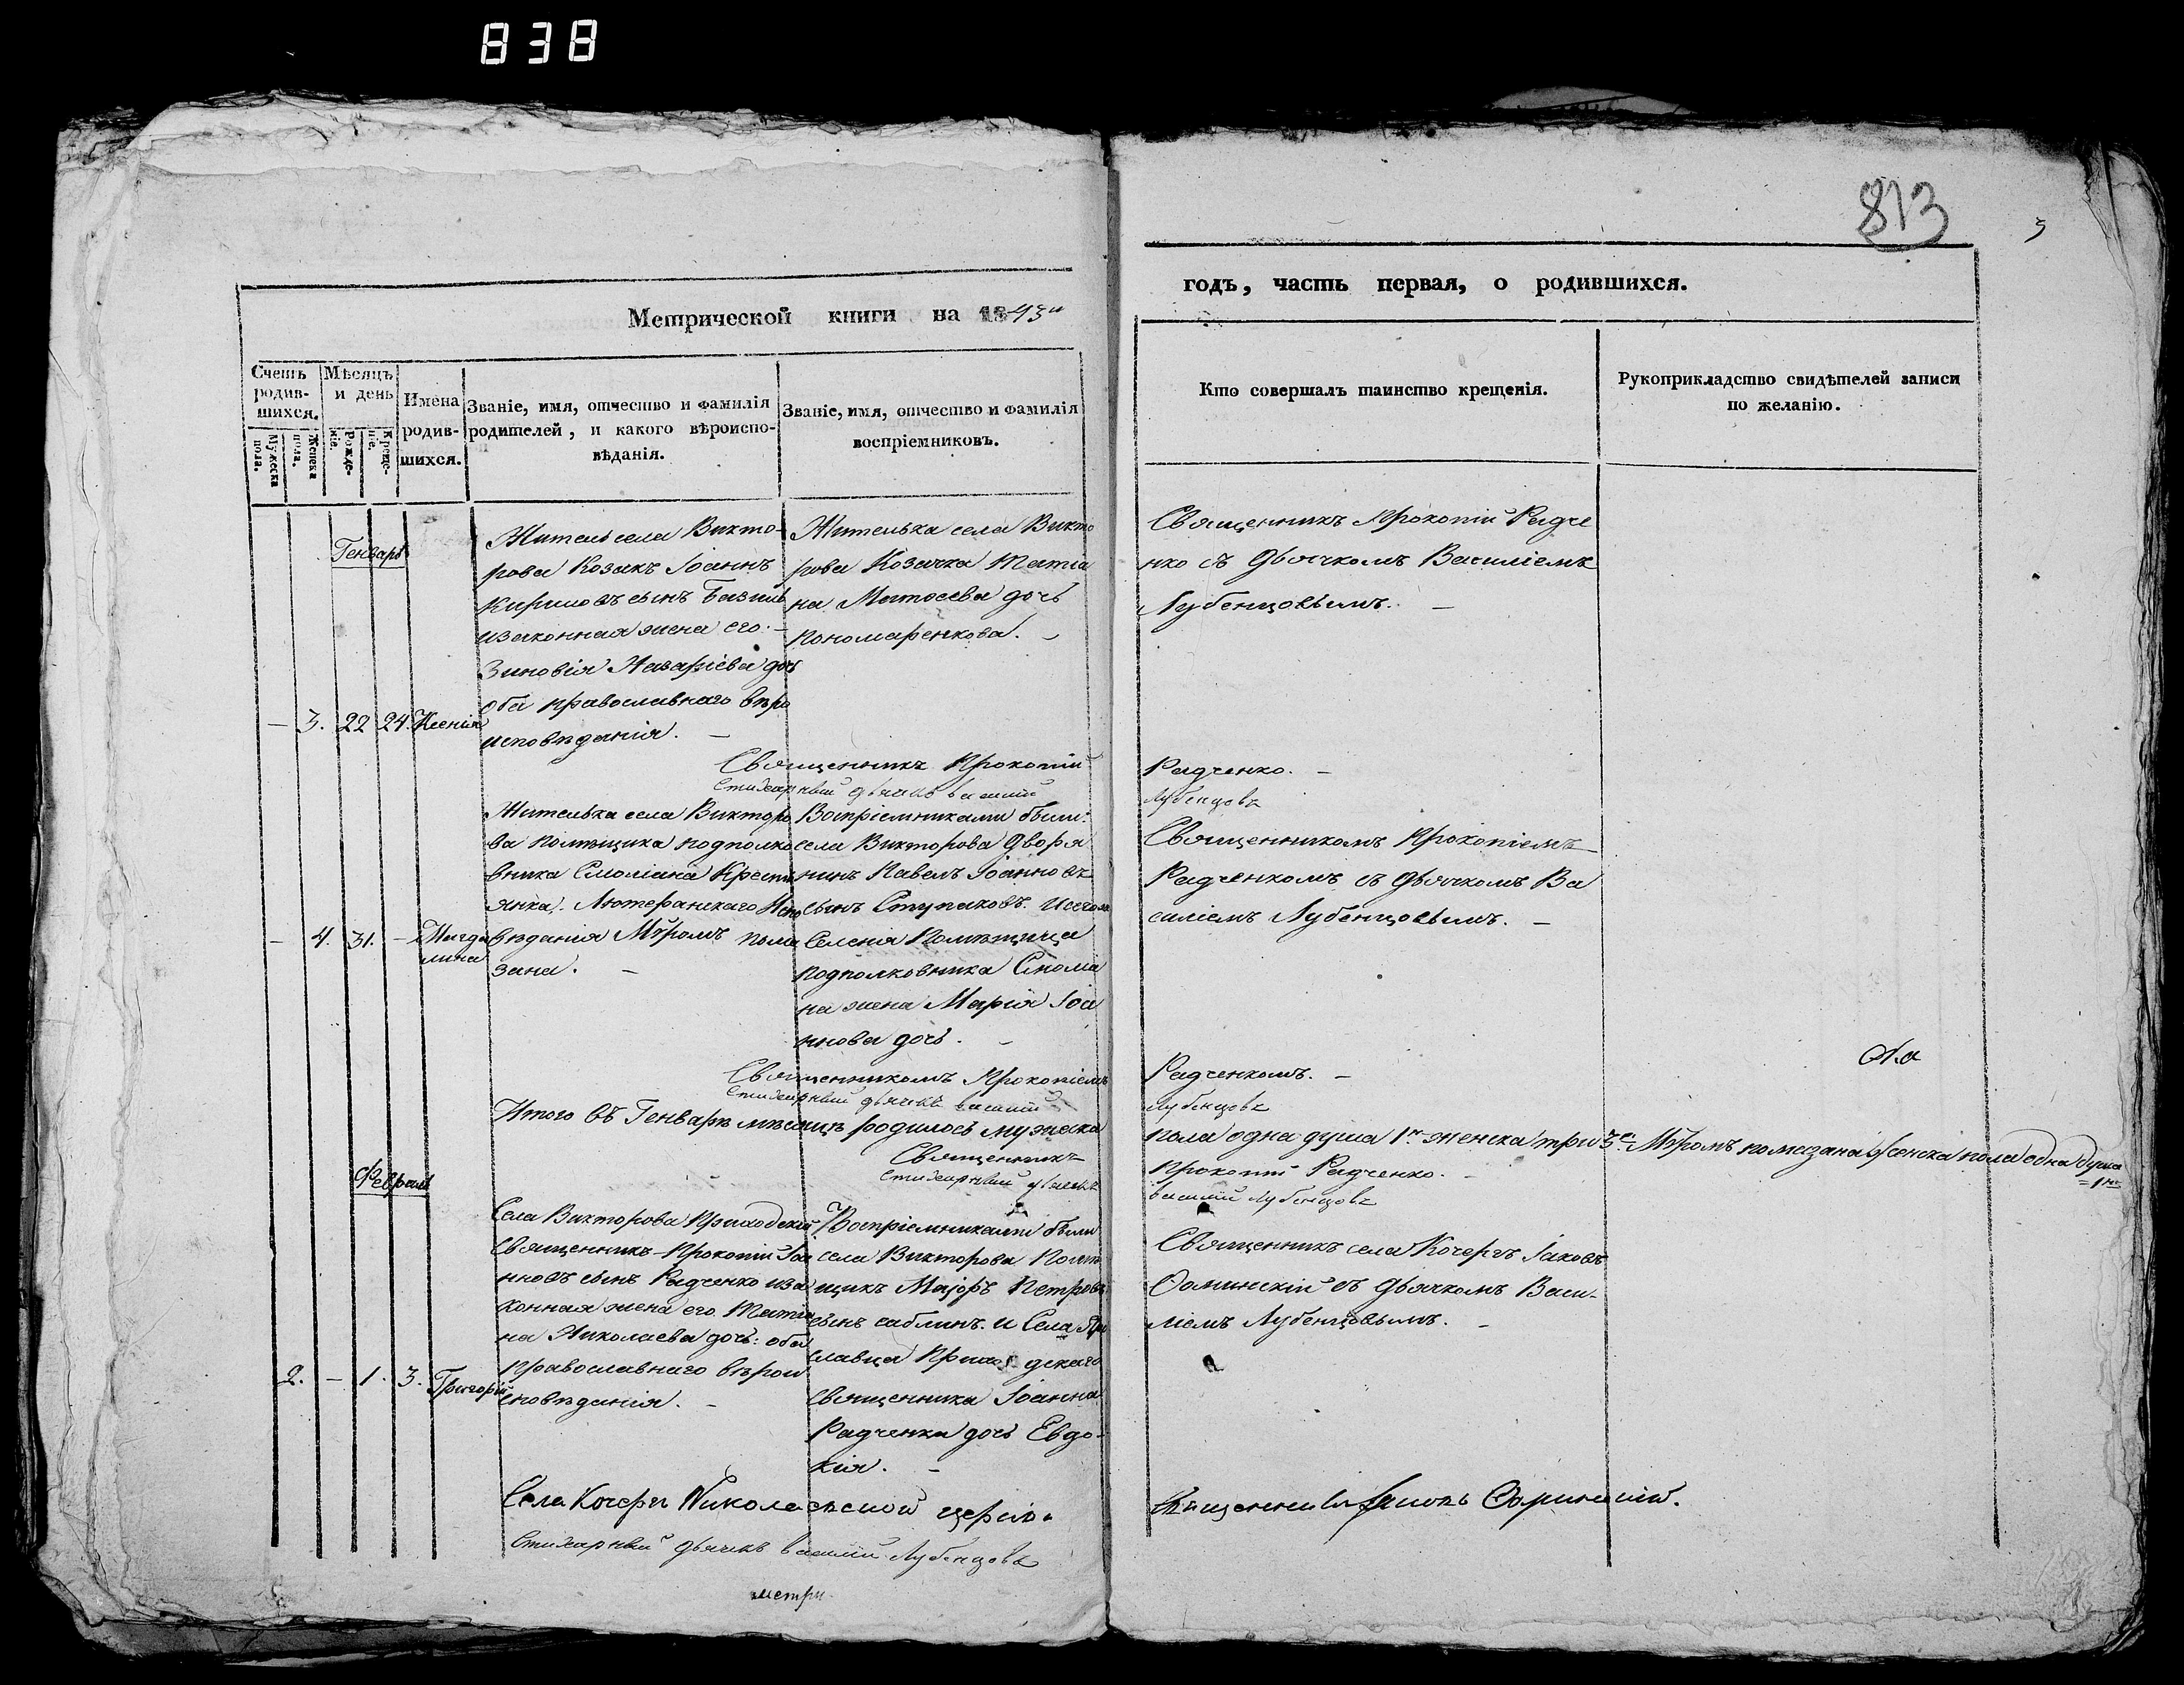 838
813
3
Метрической книги на 1843й
годъ, часть первая, о родившихся.
Счетъ родив-шихся.
Мужеска пола.
Женска пола.
Мѣсяцъ и день
Рожде-нiе.
Креще-нiе.
Имена родив-шихся.
Званіе, имя, отчество и фамилія
родителей, и какого вѣроиспо-
вѣданія.
Званіе, имя, отчество и фамилія
воспріемниковъ.
Кто совершалъ таинство крещенія.
Рукоприкладство свидѣтелей записи
по желанію.
Генварь
– 3. 22 24. Ксенія
Житель села Викто-
рова Козакъ Іоаннъ
Кириловъ сынъ
изаконная жена его. –
Зиновія Назаріева дочь
оба православнаго вѣро
исповѣданія. –
Жителька села Викто
рова Козачка Татіа
на Матѳеева дочь
Пономаренкова. –
Священникъ Прокопій Радче
нко съ Дьячкомъ Василіемъ
Лубенцовымъ. –
Священникъ Прокопій Радченко. –
Стихарный дьячекъ василій Лубенцовъ
– 4. 31. – Магда
лина
Жителька села Викторо
ва помѣщика подполко
вника Смоліана Крестья
янка. Лютеранскаго Испо
вѣданія Мѵромъ пома
зана. –
Воспріемниками были:
села Викторова Дворя
нинъ Павелъ Іоанновъ
сынъ Ступаковъ. И
Селенія Помѣщица
подполковника Смолиа
на жена Марія Іоа
ннова дочь. –
Священникомъ Прокопіемъ
Радченкомъ съ Дьячкомъ Ва
силіемъ Лубенцовымъ. –
Священникомъ Прокопіемъ Радченкомъ. –
Стихарный дьячекъ василій Лубенцовъ
Итого въ Генварѣ мѣсяцѣ родилось мужеска пола одна душа 1. женска три 3. Мѵромъ помазана женска пола одна душа
= 1
Священникъ Прокопій Радченко. –
Стихарный дьячекъ василій Лубенцовъ
Февраль
2. – 1. 3. Григорій
Села Викторова Приходскій
Священникъ Прокопій Іоа
нновъ сынъ Радченко иза
конная жена его Татіа
на Николаева дочь: оба
православнаго вѣрои
сповѣданія. –
Воспріемниками были
села Викторова Помѣ
щикъ Маіоръ Петровъ
сынъ саблинъ. и Села
славца Приходскаго
Священника Іоанна
Радченка дочь Евдо-
кія. –
Священникъ села Кочергъ Іаковъ
съ Дьячкомъ Васи-
ліемъ Лубенцовымъ. –
Села Кочергъ Николаевской церкви Священникъ Іаковъ
Стихарный дьячекъ василій Лубенцовъ
метри